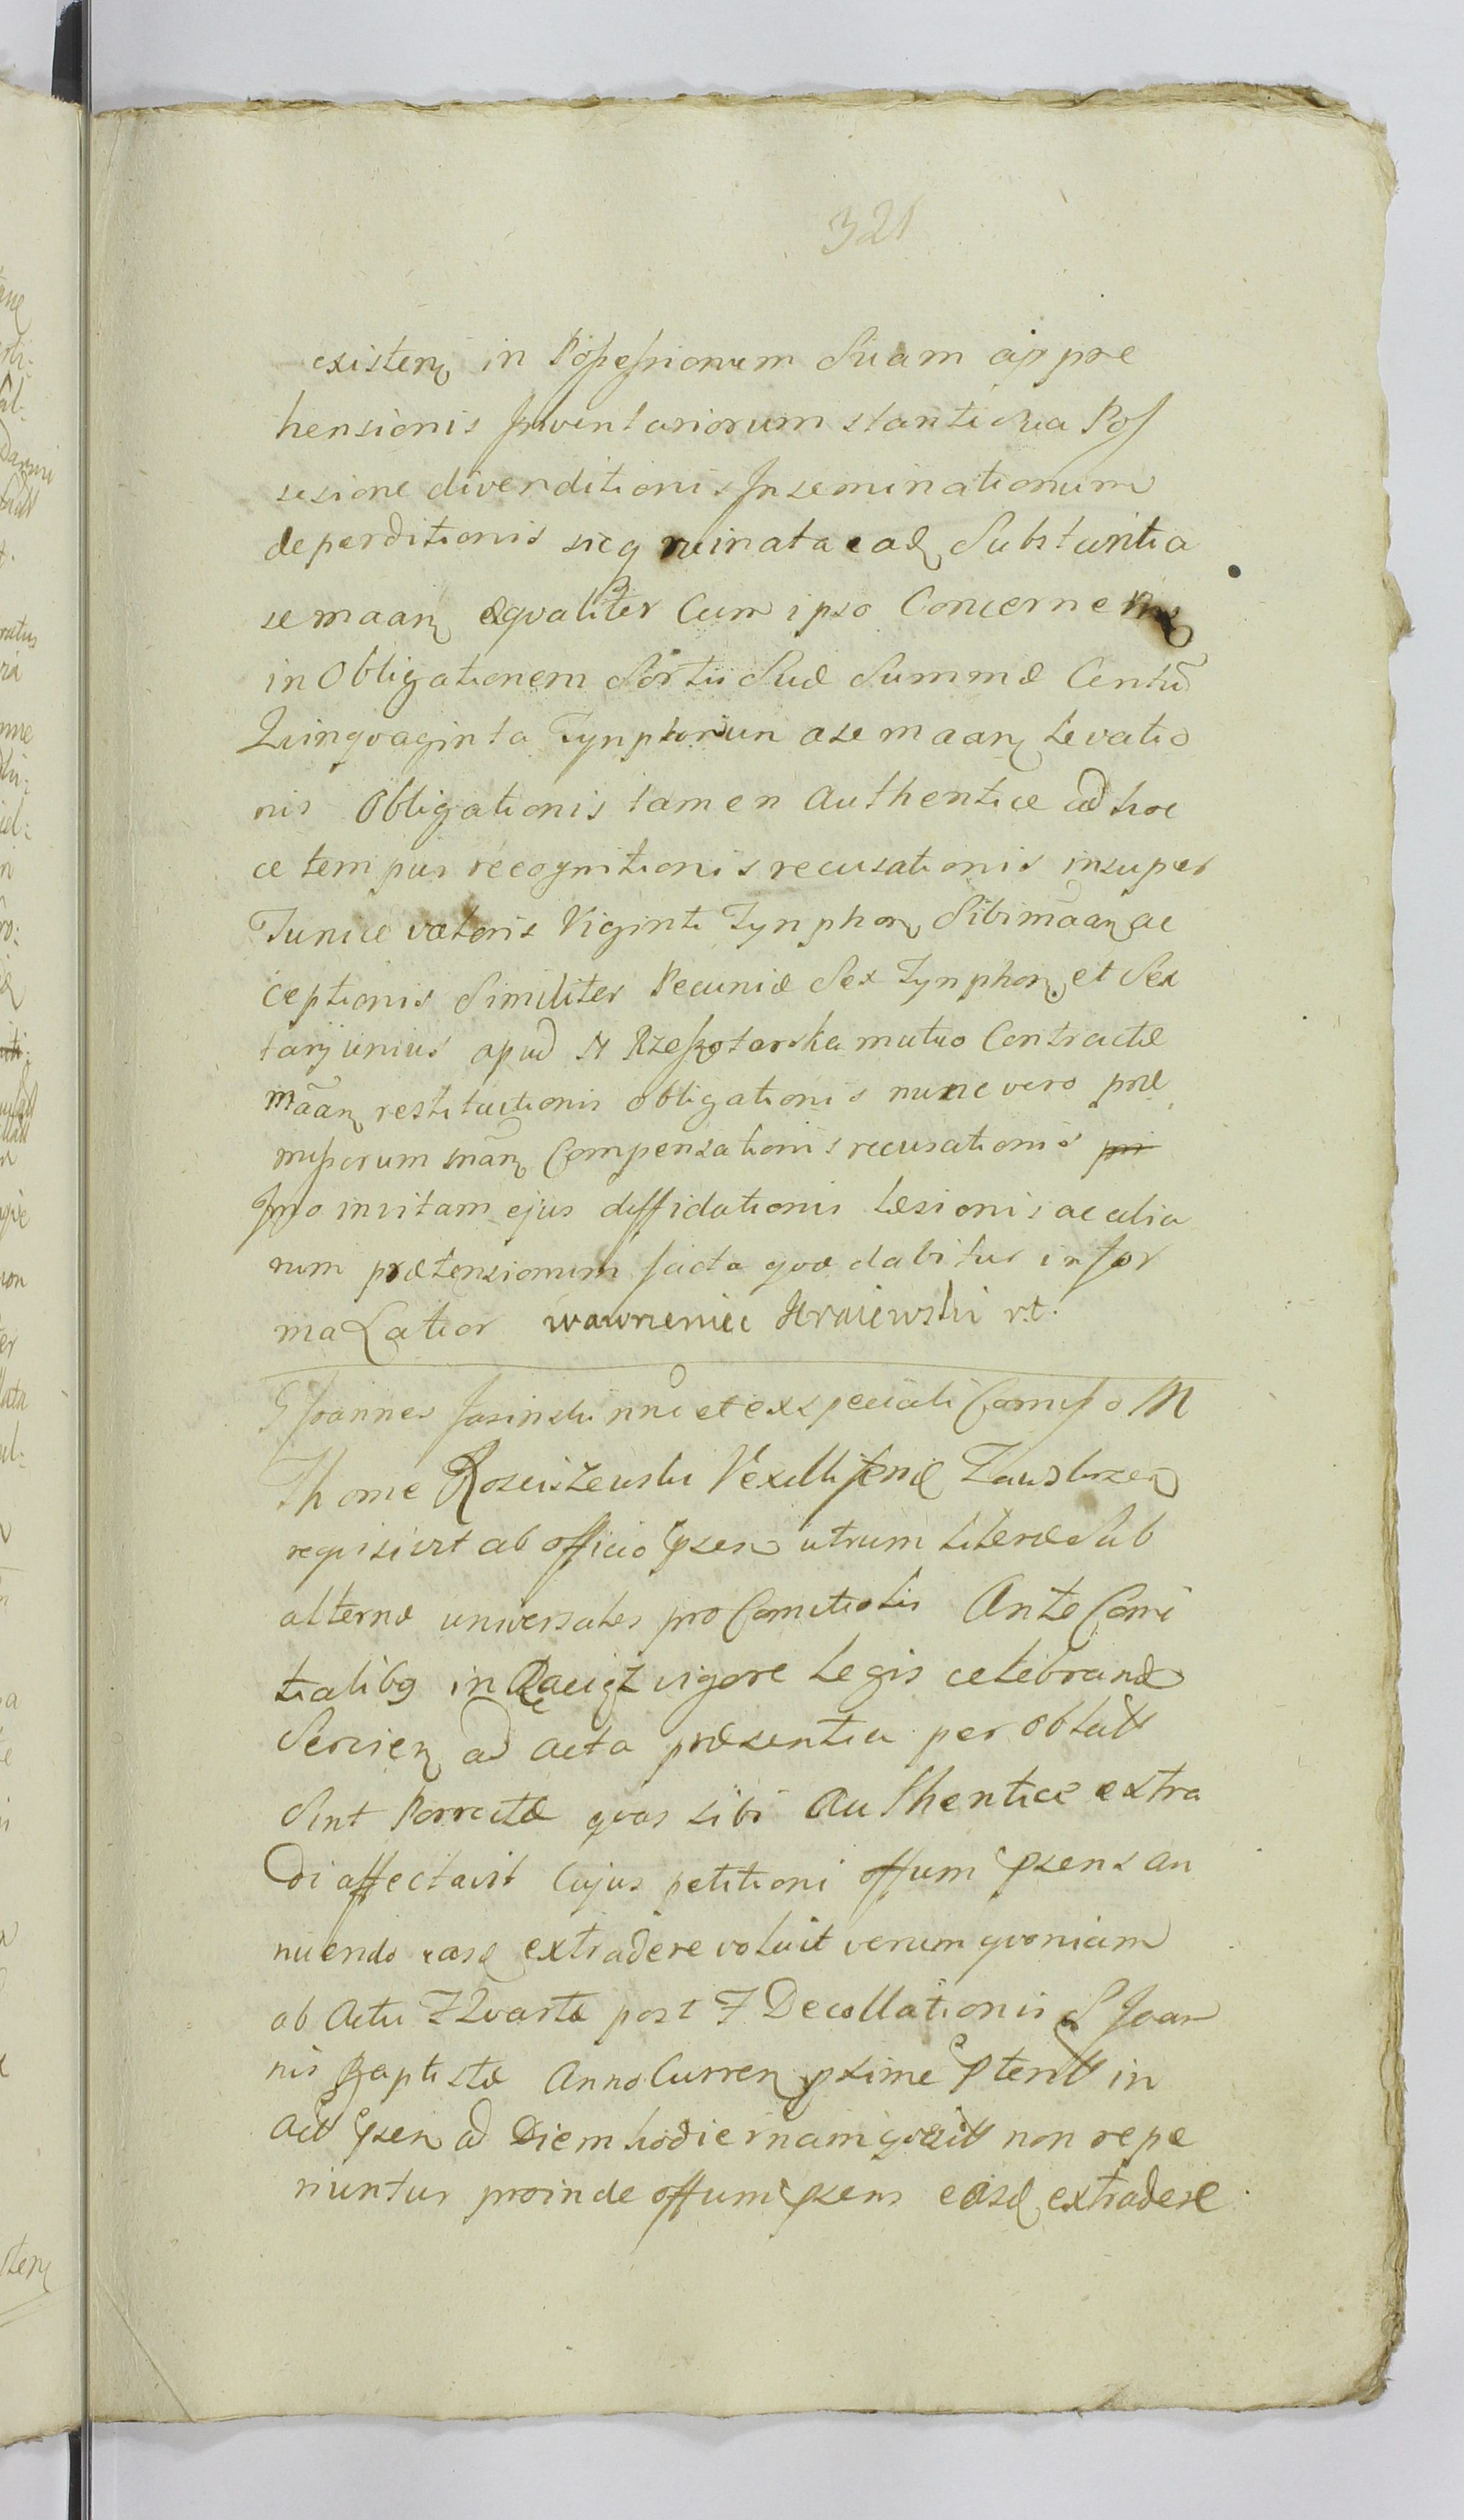 321
existen in Possessionem Suam appre
hensionis Inventariorum stante sua Pos
sesione divenditionis Inseminationum
deperditionis sicq ruinata ead Substantia
se maan æqvaliter Cum ipso Concernen
in Obligationem Sortis Suæ Summæ Centu
Quinqvaginta Tynphorum a se maan Levatio
nis Obligationis tamen Authenticæ ad hoc
ce tempus recognitionis recusationis insuper
Tunicæ valoris Viginti Tynphor Sibi maan ac
ceptionis Similiter Pecuniæ Sex Tynphor et Sex
tarij unius apud N Rzeszotarska mutuo Contractæ
maan restitutionis obligationis nunc vero præ
missorum maan Compensationis recusationis
Imo in vitam ejus diffidationis Læsionis ac alia
rum prætensionum facta qvæ dabitur in for
ma Latior wawrzeniec Krajewski
G Joannes Jasinski nne et ex speciali Comisso M
Thomæ Rosciszewski Vexilliferi Zawskrzen
reqvisivit ab officio psen utrum Literæ Sub
alternæ universales pro Comitiolis Ante Comi
tialibg in Raciąż vigore Legis celebrand
Servien ad acta præsentia per oblatt
Sint Porrectæ qvas sibi Authentice extra
di affectavit Cujus petitioni offum psens an
nuendo easd extradere voluit verum qvoniam
ab Actu F Qvarta post F Decollationis S Joan
nis Baptistæ Anno Curren pxime ptentt in
Act psen ad Diem hodiernam qvæsitt non repe
riuntur proinde offum psens easd extradere